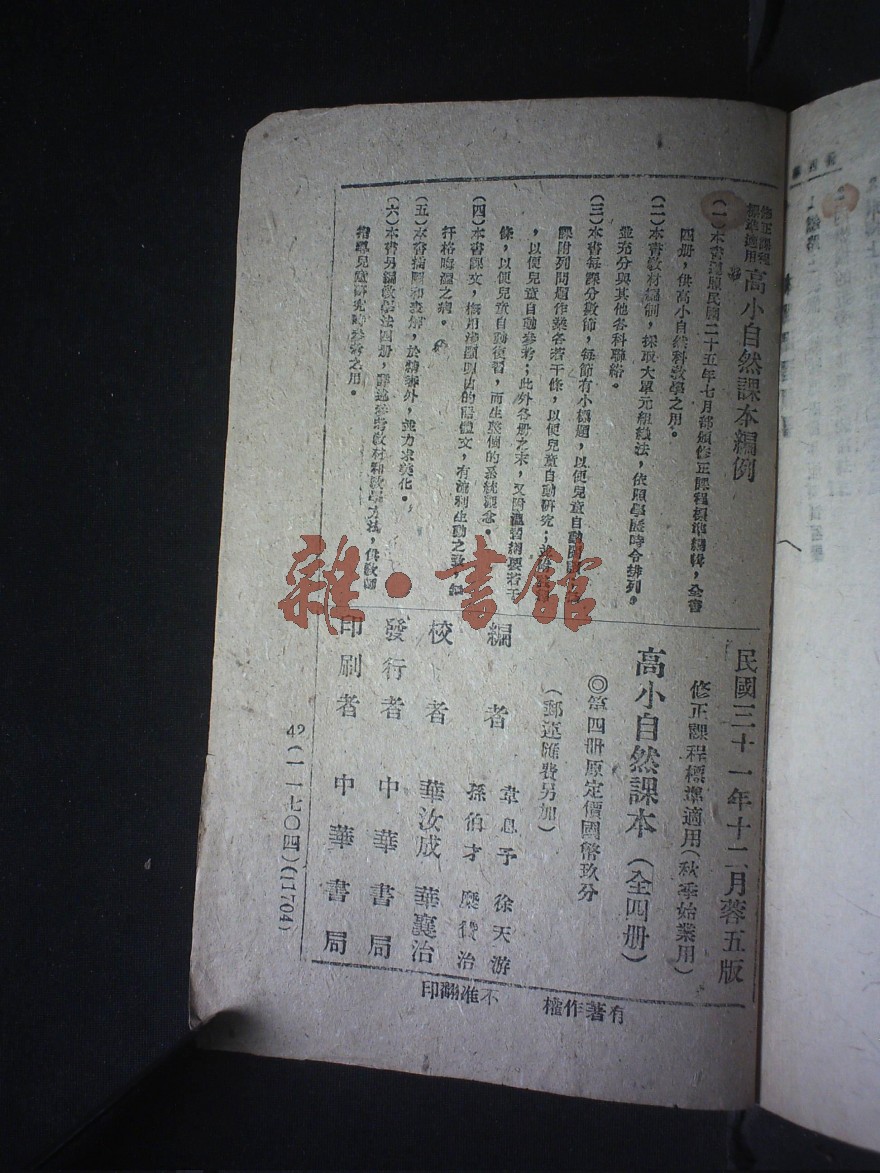 修正課程
標準適用
高小自然課本編例
（一）本書遵照民國二十五年七月部頒修正課程標準編輯，全書
四册，供高小自然科教學之用。
（二）本書教材編制，採取大單元組織法，依照學歷時令排列。
並充分與其他各科聯絡。
（三）本書每課分數節，每節有小標題，以便兒童自動
課附列問題作業各若干條，以便兒童自動研究；
，以便兒童自動參考；此外各册之末，又附溫習綱要若干
條，以便兒童自動復習，而生整個的系統觀念。
（四）本書課文，概用淺顯明白的語體文，有流利生動之致，無
扞格晦澀之病。
（五）本書插圖和表解，於精審外，並力求美化。
（六）本書另編教學法四册，詳述參考教材和教學方法，供教師
指導兒童研究時參考之用。
民國三十一年十二月蓉五版
修正課程標準適用（秋季始業用）
高小自然課本（全四册）
◎第四册原定價國幣玖分
（郵運匯費另加）
編者 韋息予 徐天游
孫伯才 糜贊治
校者 華汝成 華襄治
發行者 中華書局
印刷者 中華書局
42（一一七〇四）（11704）
有著作權
不准翻印
雜·書館